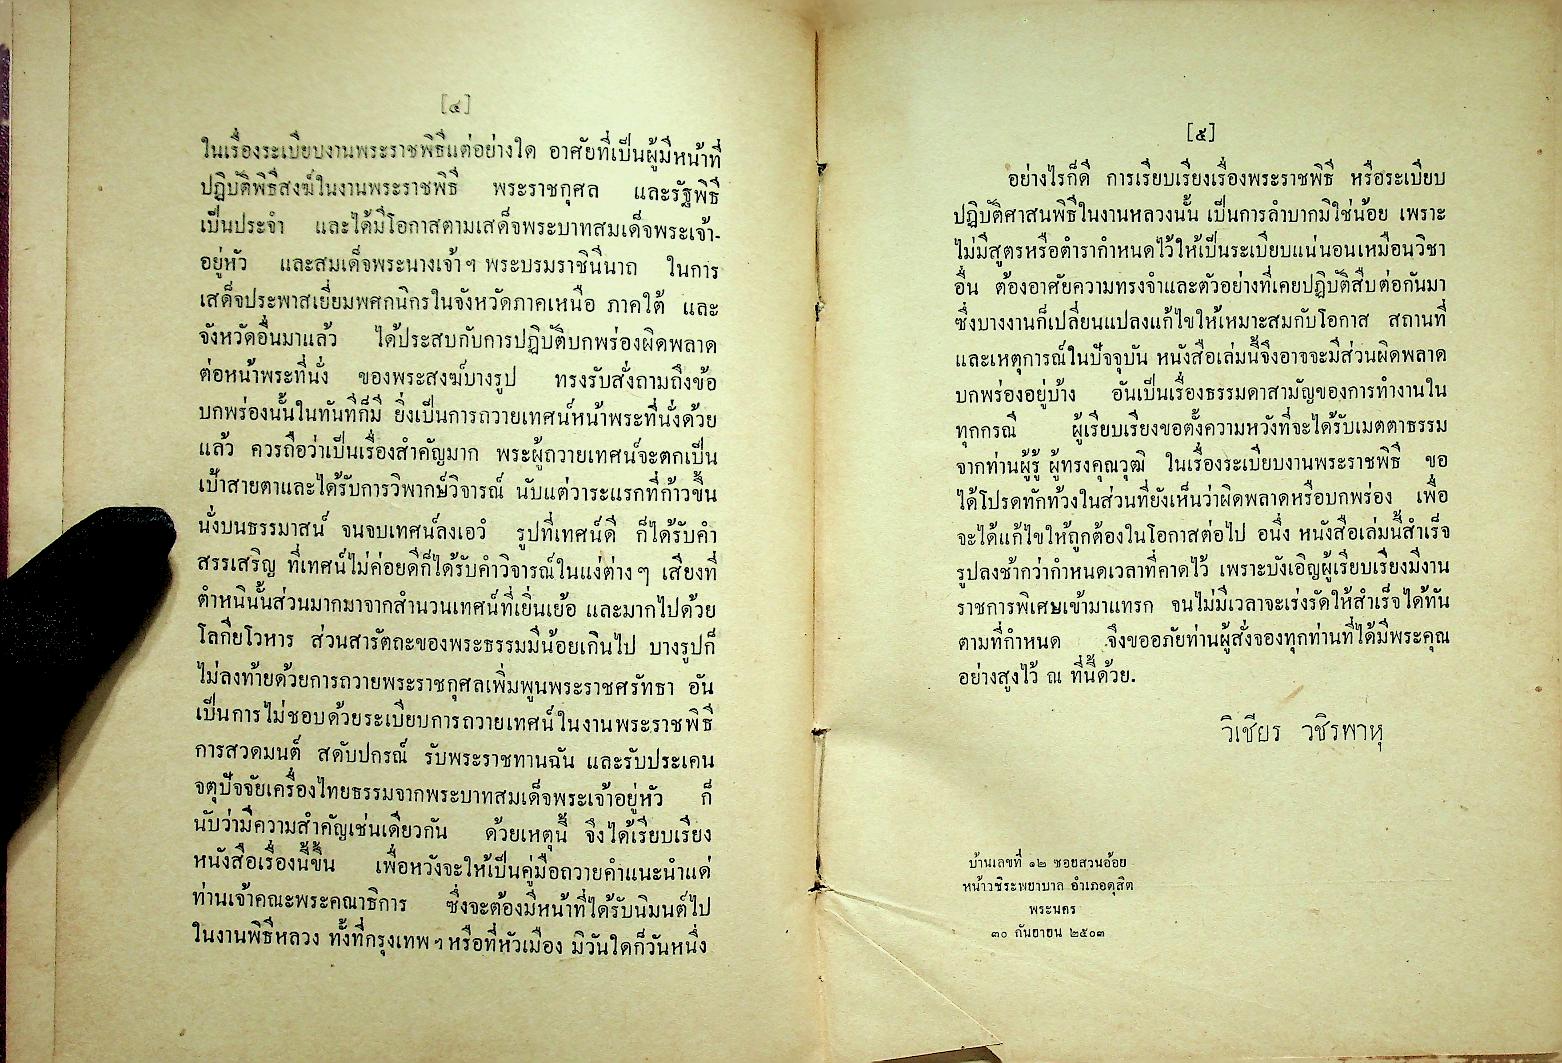 [๔]
ในเรื่องระเบียบงานพระราชพิธีแต่อย่างใด อาศัยที่เป็นผู้มีหน้าที่
ปฏิบัติพิธีสงฆ์ในงานพระราชพิธี พระราชกุศล และรัฐพิธี
เป็นประจำ และได้มีโอกาสตามเสด็จพระบาทสมเด็จพระเจ้า-
อยู่หัว และสมเด็จพระนางเจ้าฯ พระบรมราชินีนาถ ในการ
เสด็จประพาสเยี่ยมพศกนิกรในจังหวัดภาคเหนือ ภาคใต้ และ
จังหวัดอื่นมาแล้ว ได้ประสบกับการปฏิบัติบกพร่องผิดพลาด
ต่อหน้าพระที่นั่ง ของพระสงฆ์บางรูป ทรงรับสั่งถามถึงข้อ
บกพร่องนั้นในทันทีก็มี ยิ่งเป็นการถวายเทศน์หน้าพระที่นั่งด้วย
แล้ว ควรถือว่าเป็นเรื่องสำคัญมาก พระผู้ถวายเทศน์จะตกเป็น
เป้าสายตาและได้รับการวิพากษ์วิจารณ์ นับแต่วาระแรกที่ก้าวขึ้น
นั่งบนธรรมาสน์ จนจบเทศน์ลงเอวํ รูปที่เทศน์ดี ก็ได้รับคำ
สรรเสริญ ที่เทศน์ไม่ค่อยดีก็ได้รับคำวิจารณ์ในแง่ต่างๆ เสียงที่
ตำหนินั้นส่วนมากมาจากสำนวนเทศน์ที่เยิ่นเย้อ และมากไปด้วย
โลกียโวหาร ส่วนสารัตถะของพระธรรมมีน้อยเกินไป บางรูปก็
ไม่ลงท้ายด้วยการถวายพระราชกุศลเพิ่มพูนพระราชศรัทธา อัน
เป็นการไม่ชอบด้วยระเบียบการถวายเทศน์ในงานพระราชพิธี
การสวดมนต์ สดับปกรณ์ รับพระราชทานฉัน และรับประเคน
จตุปัจจัยเครื่องไทยธรรมจากพระบาทสมเด็จพระเจ้าอยู่หัว ก็
นับว่ามีความสำคัญเช่นเดียวกัน ด้วยเหตุนี้ จึงได้เรียบเรียง
หนังสือเรื่องนี้ขึ้น เพื่อหวังจะให้เป็นคู่มือถวายคำแนะนำแด่
ท่านเจ้าคณะพระคณาธิการ ซึ่งจะต้องมีหน้าที่ได้รับนิมนต์ไป
ในงานพิธีหลวง ทั้งที่กรุงเทพฯ หรือที่หัวเมือง มิวันใดก็วันหนึ่ง
[๕]
อย่างไรก็ดี การเรียบเรียงเรื่องพระราชพิธี หรือระเบียบ
ปฏิบัติศาสนพิธีในงานหลวงนั้น เป็นการลำบากมิใช่น้อย เพราะ
ไม่มีสูตรหรือตำรากำหนดไว้ให้เป็นระเบียบแน่นอนเหมือนวิชา
อื่น ต้องอาศัยความทรงจำและตัวอย่างที่เคยปฏิบัติสืบต่อกันมา
ซึ่งบางงานก็เปลี่ยนแปลงแก้ไขให้เหมาะสมกับโอกาส สถานที่
และเหตุการณ์ในปัจจุบัน หนังสือเล่มนี้จึงอาจจะมีส่วนผิดพลาด
บกพร่องอยู่บ้าง อันเป็นเรื่องธรรมดาสามัญของการทำงานใน
ทุกกรณี ผู้เรียบเรียงขอตั้งความหวังที่จะได้รับเมตตาธรรม
จากท่านผู้รู้ ผู้ทรงคุณวุฒิ ในเรื่องระเบียบงานพระราชพิธี ขอ
ได้โปรดทักท้วงในส่วนที่ยังเห็นว่าผิดพลาดหรือบกพร่อง เพื่อ
จะได้แก้ไขให้ถูกต้องในโอกาสต่อไป อนึ่ง หนังสือเล่มนี้สำเร็จ
รูปลงช้ากว่ากำหนดเวลาที่คาดไว้ เพราะบังเอิญผู้เรียบเรียงมีงาน
ราชการพิเศษเข้ามาแทรก จนไม่มีเวลาจะเร่งรัดให้สำเร็จได้ทัน
ตามที่กำหนด จึงขออภัยท่านผู้สั่งจองทุกท่านที่ได้มีพระคุณ
อย่างสูงไว้ ณ ที่นี้ด้วย.
วิเชียร วชิรพาหุ
บ้านเลขที่ ๑๒ ซอยสวนอ้อย
หน้าวชิระพยาบาล อำเภอดุสิต
พระนคร
๓๐ กันยายน ๒๕๐๓